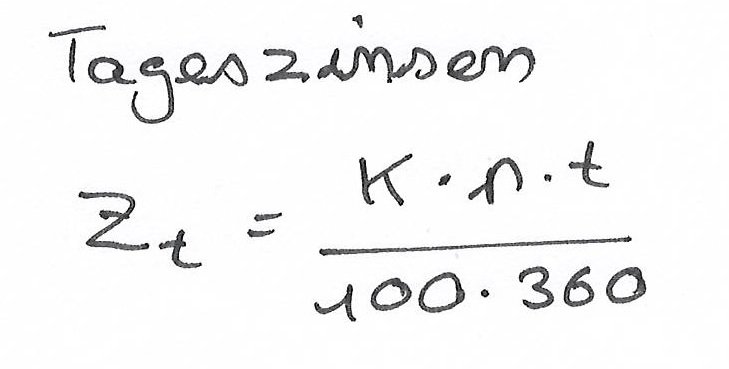 Tageszinsen
Z_t = (K · p · t) / (100 · 360)